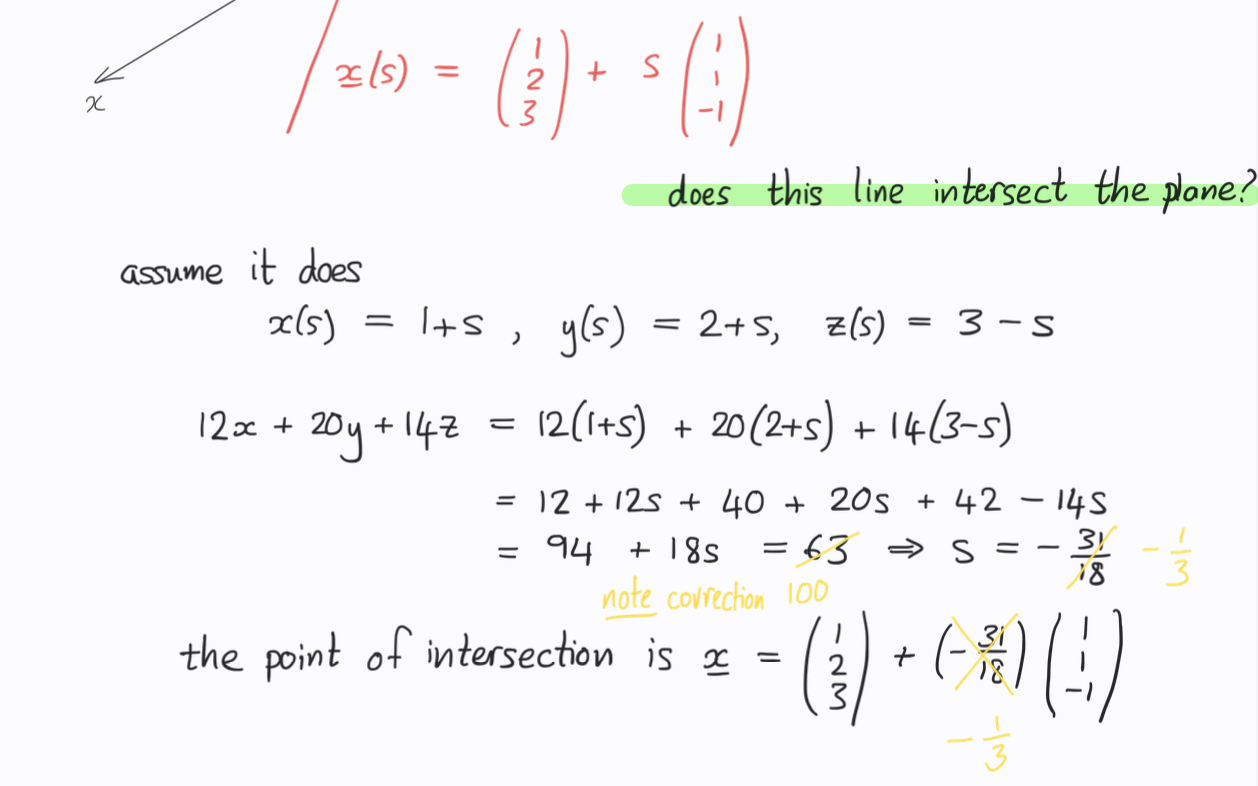 x(s) = (1 2 3) + s (1 1 -1)
x
does this line intersect the plane?
assume it does
x(s) = 1+s , y(s) = 2+s, z(s) = 3 - s
12x + 20y + 14z = 12(1+s) + 20(2+s) + 14(3-s)
= 12 + 12s + 40 + 20s + 42 - 14s
= 94 + 18s = 63 ⇒ s = - 31/18 - 1/3
note correction 100
the point of intersection is x = (1 2 3) + (- 31/18) (1 1 -1)
- 1/3